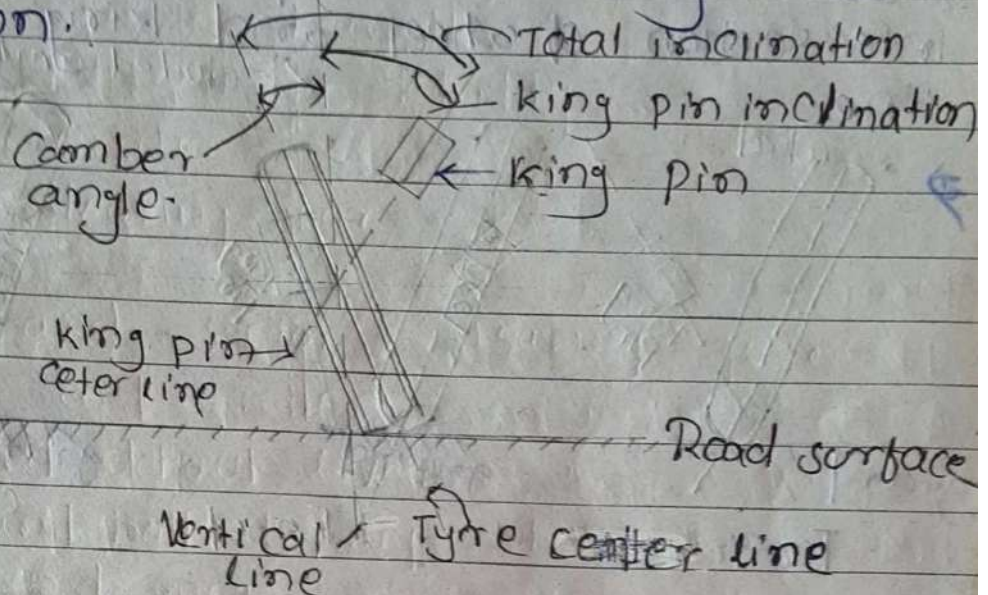 on.
Total inclination
king pin inclination
Camber
angle.
king pin
king pin
Ceter line
Road surface
Vertical
line
Tyre center line